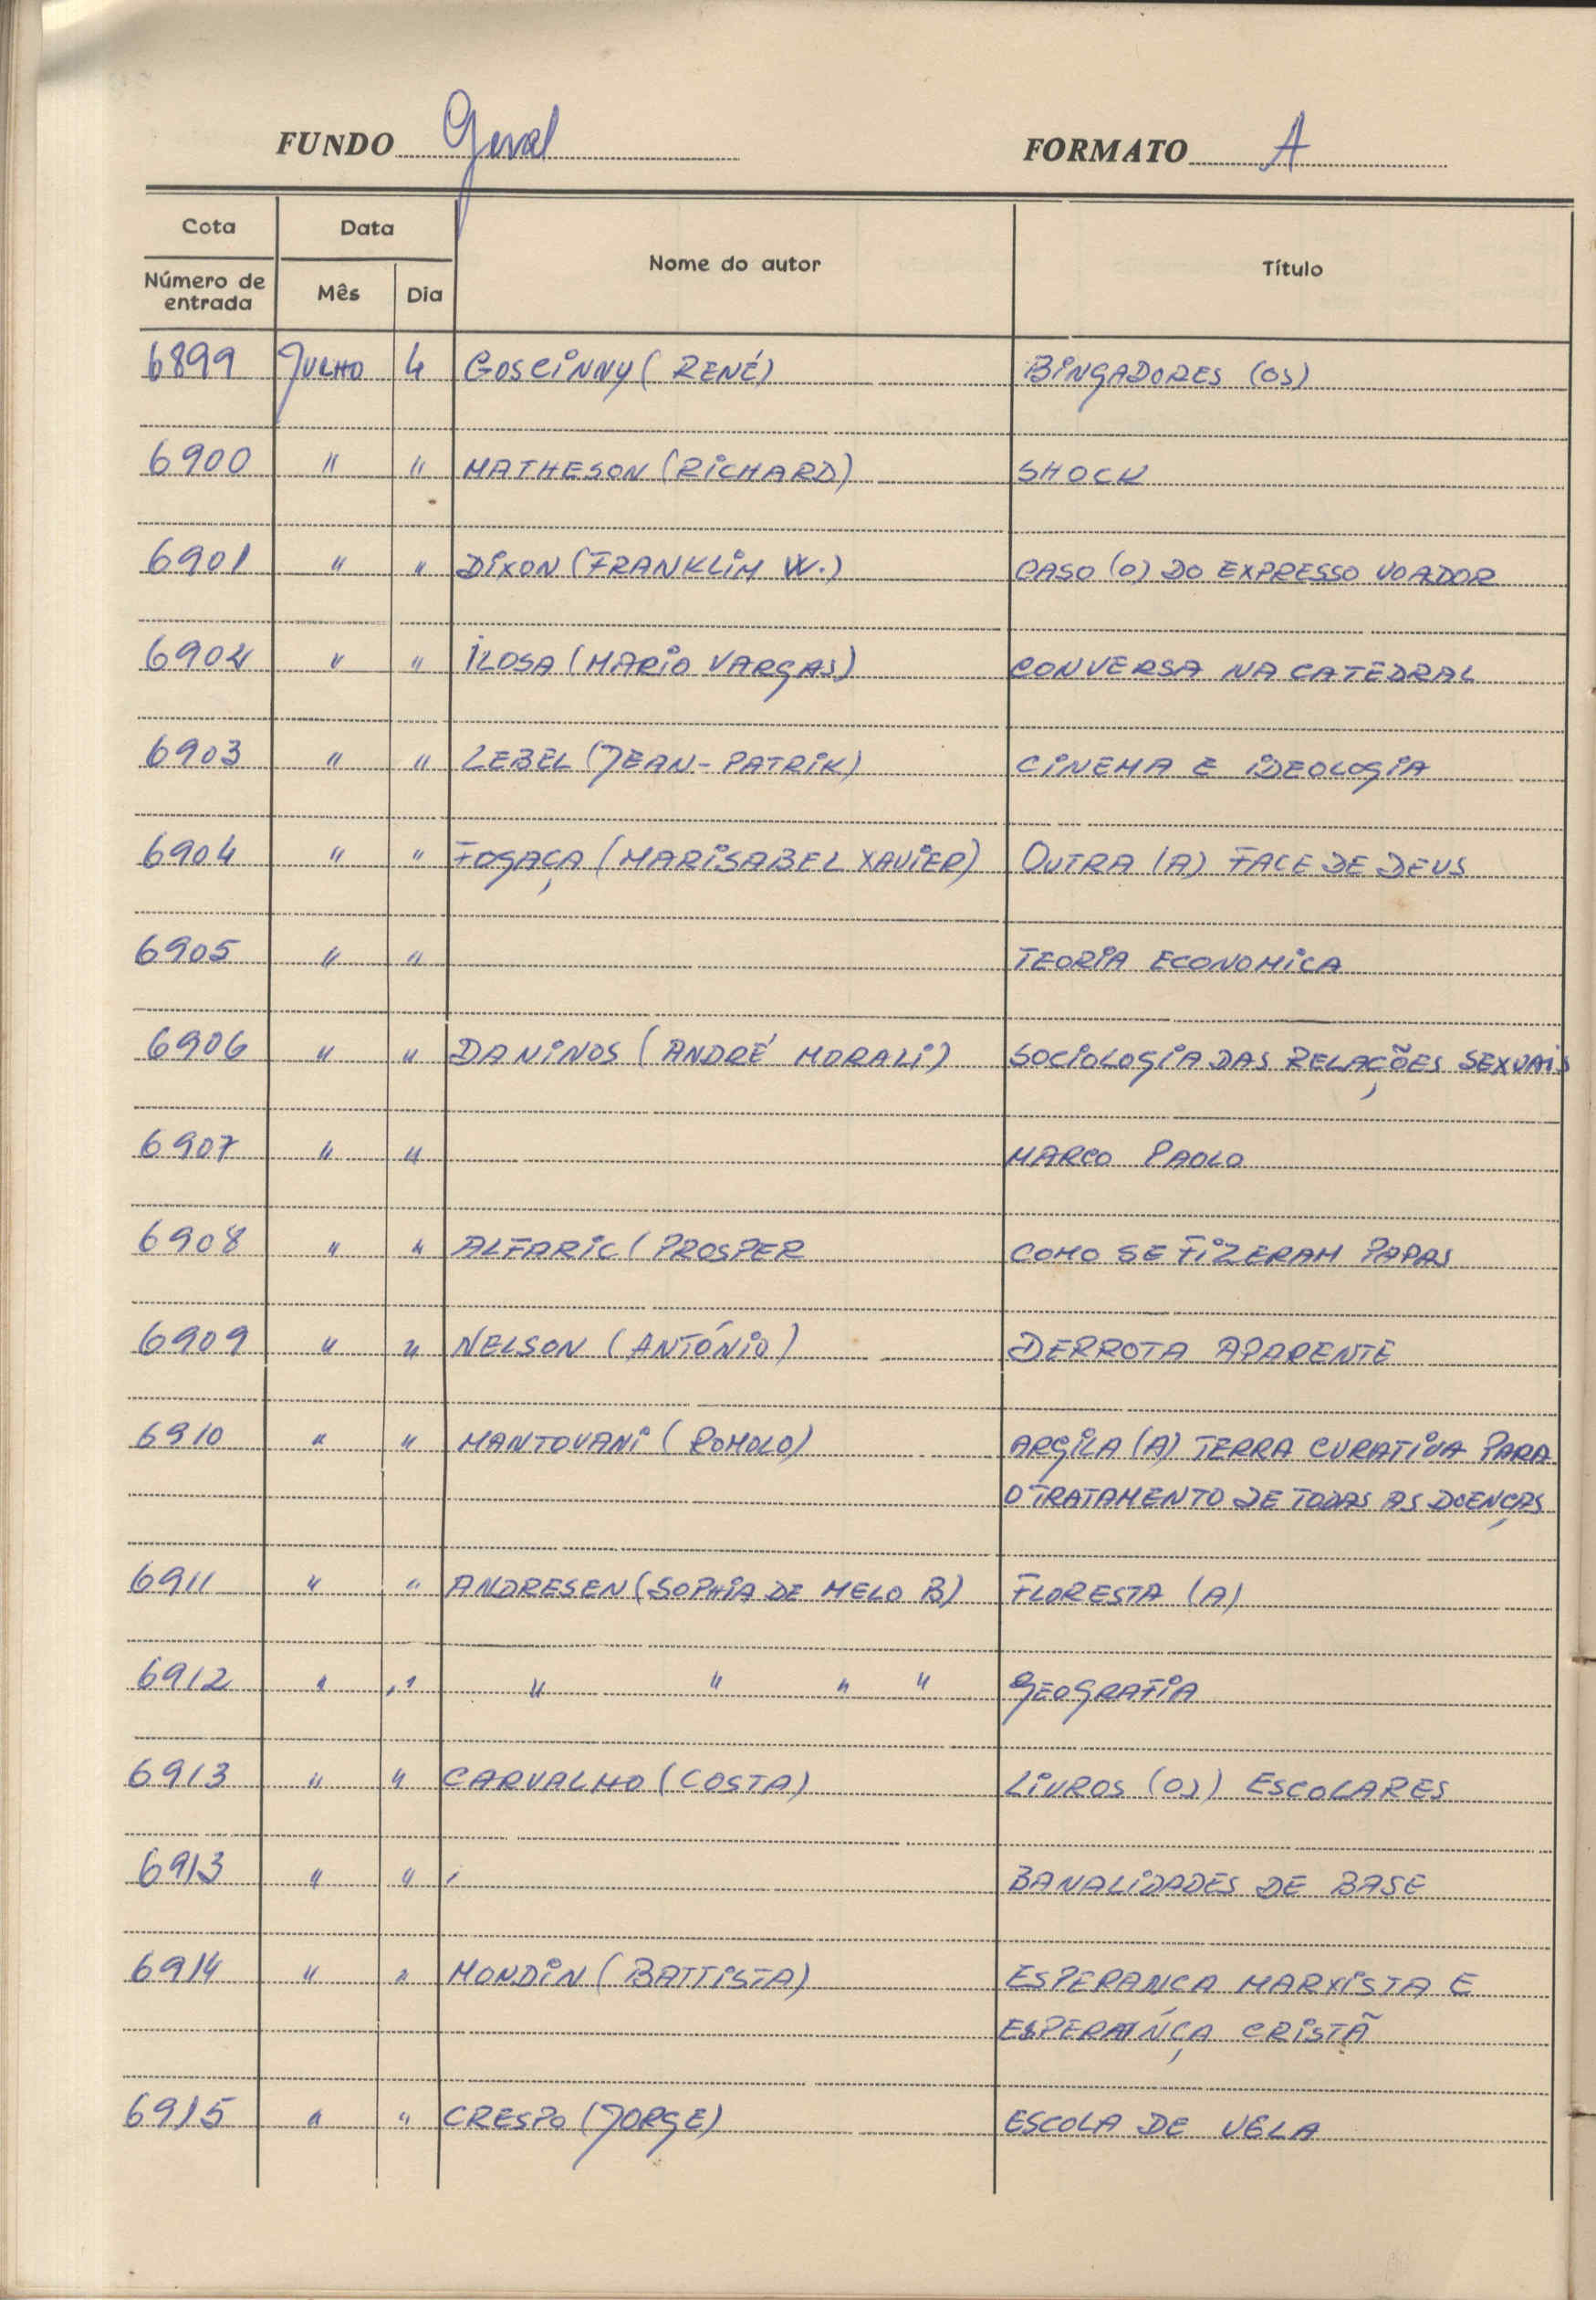 FUNDO Geral FORMATO A
Cota Data Nome do autor Título
Número de entrada Mês Dia
6899 JULHO 4 GOSCINNY (RENÉ) BINGADORES (OS)
6900 " " MATHESON (RICHARD) SHOCK
6901 " " DIXON (FRANKLIM W.) CASO (O) DO EXPRESSO VOADOR
6902 " " ILOSA (MARIO VARGAS) CONVERSA NA CATEDRAL
6903 " " LEBEL (JEAN-PATRIK) CINEMA E IDEOLOGIA
6904 " " FOGAÇA (MARISABEL XAVIER) OUTRA (A) FACE DE DEUS
6905 " " TEORIA ECONOMICA
6906 " " DANINOS (ANDRÉ MORALI) SOCIOLOGIA DAS RELAÇÕES SEXUAIS
6907 " " MARCO PAOLO
6908 " " ALFARIC (PROSPER COMO SE FIZERAM PAPAS
6909 " " NELSON (ANTÓNIO) DERROTA APARENTE
6910 " " MANTOVANI (ROMOLO) ARGILA (A) TERRA CURATIVA PARA
O TRATAMENTO DE TODAS AS DOENÇAS
6911 " " ANDRESEN (SOPHIA DE MELO B) FLORESTA (A)
6912 " " " " " " GEOGRAFIA
6913 " " CARVALHO (COSTA) LIVROS (OS) ESCOLARES
6913 " " BANALIDADES DE BASE
6914 " " MONDIN (BATTISTA) ESPERANCA MARXISTA E
ESPERANÇA CRISTÃ
6915 " " CRESPO (JORGE) ESCOLA DE VELA